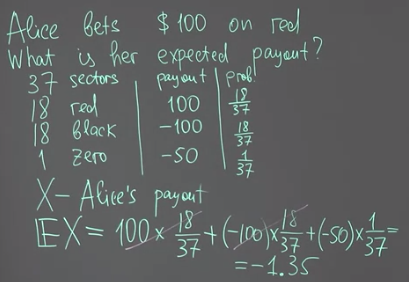 Alice bets $100 on red
What is her expected payout?
37 sectors | payout | prob.
18 red | 100 | 18/37
18 black | -100 | 18/37
1 zero | -50 | 1/37
X - Alice's payout
EX = 100 × 18/37 + (-100) × 18/37 + (-50) × 1/37 =
= -1.35